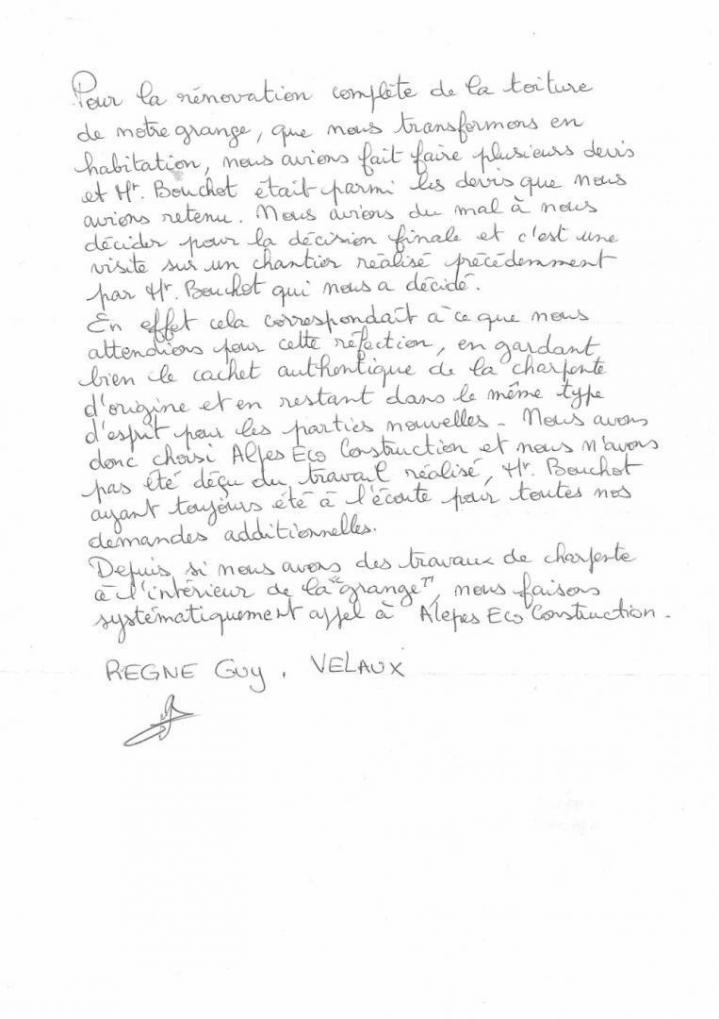 Pour la rénovation complète de la toiture
de notre grange, que nous transformons en
habitation, nous avions fait faire plusieurs devis
et Mr. Bouchot était parmi les devis que nous
avions retenu. Nous avions du mal à nous
décider pour la décision finale et c'est une
visite sur un chantier réalisé précédemment
par Mr. Bouchot qui nous a décidé.
En effet cela correspondait à ce que nous
attendions pour cette réfection, en gardant
bien le cachet authentique de la charpente
d'origine et en restant dans le même type
d'esprit pour les parties nouvelles - Nous avons
donc choisi Alpes Eco Construction et nous n'avons
pas été déçu du travail réalisé, Mr. Bouchot
ayant toujours été à l'écoute pour toutes nos
demandes additionnelles.
Depuis si nous avons des travaux de charpente
à l'intérieur de la "grange", nous faisons
systématiquement appel à Alepes Eco Construction.
REGNE Guy, VELAUX